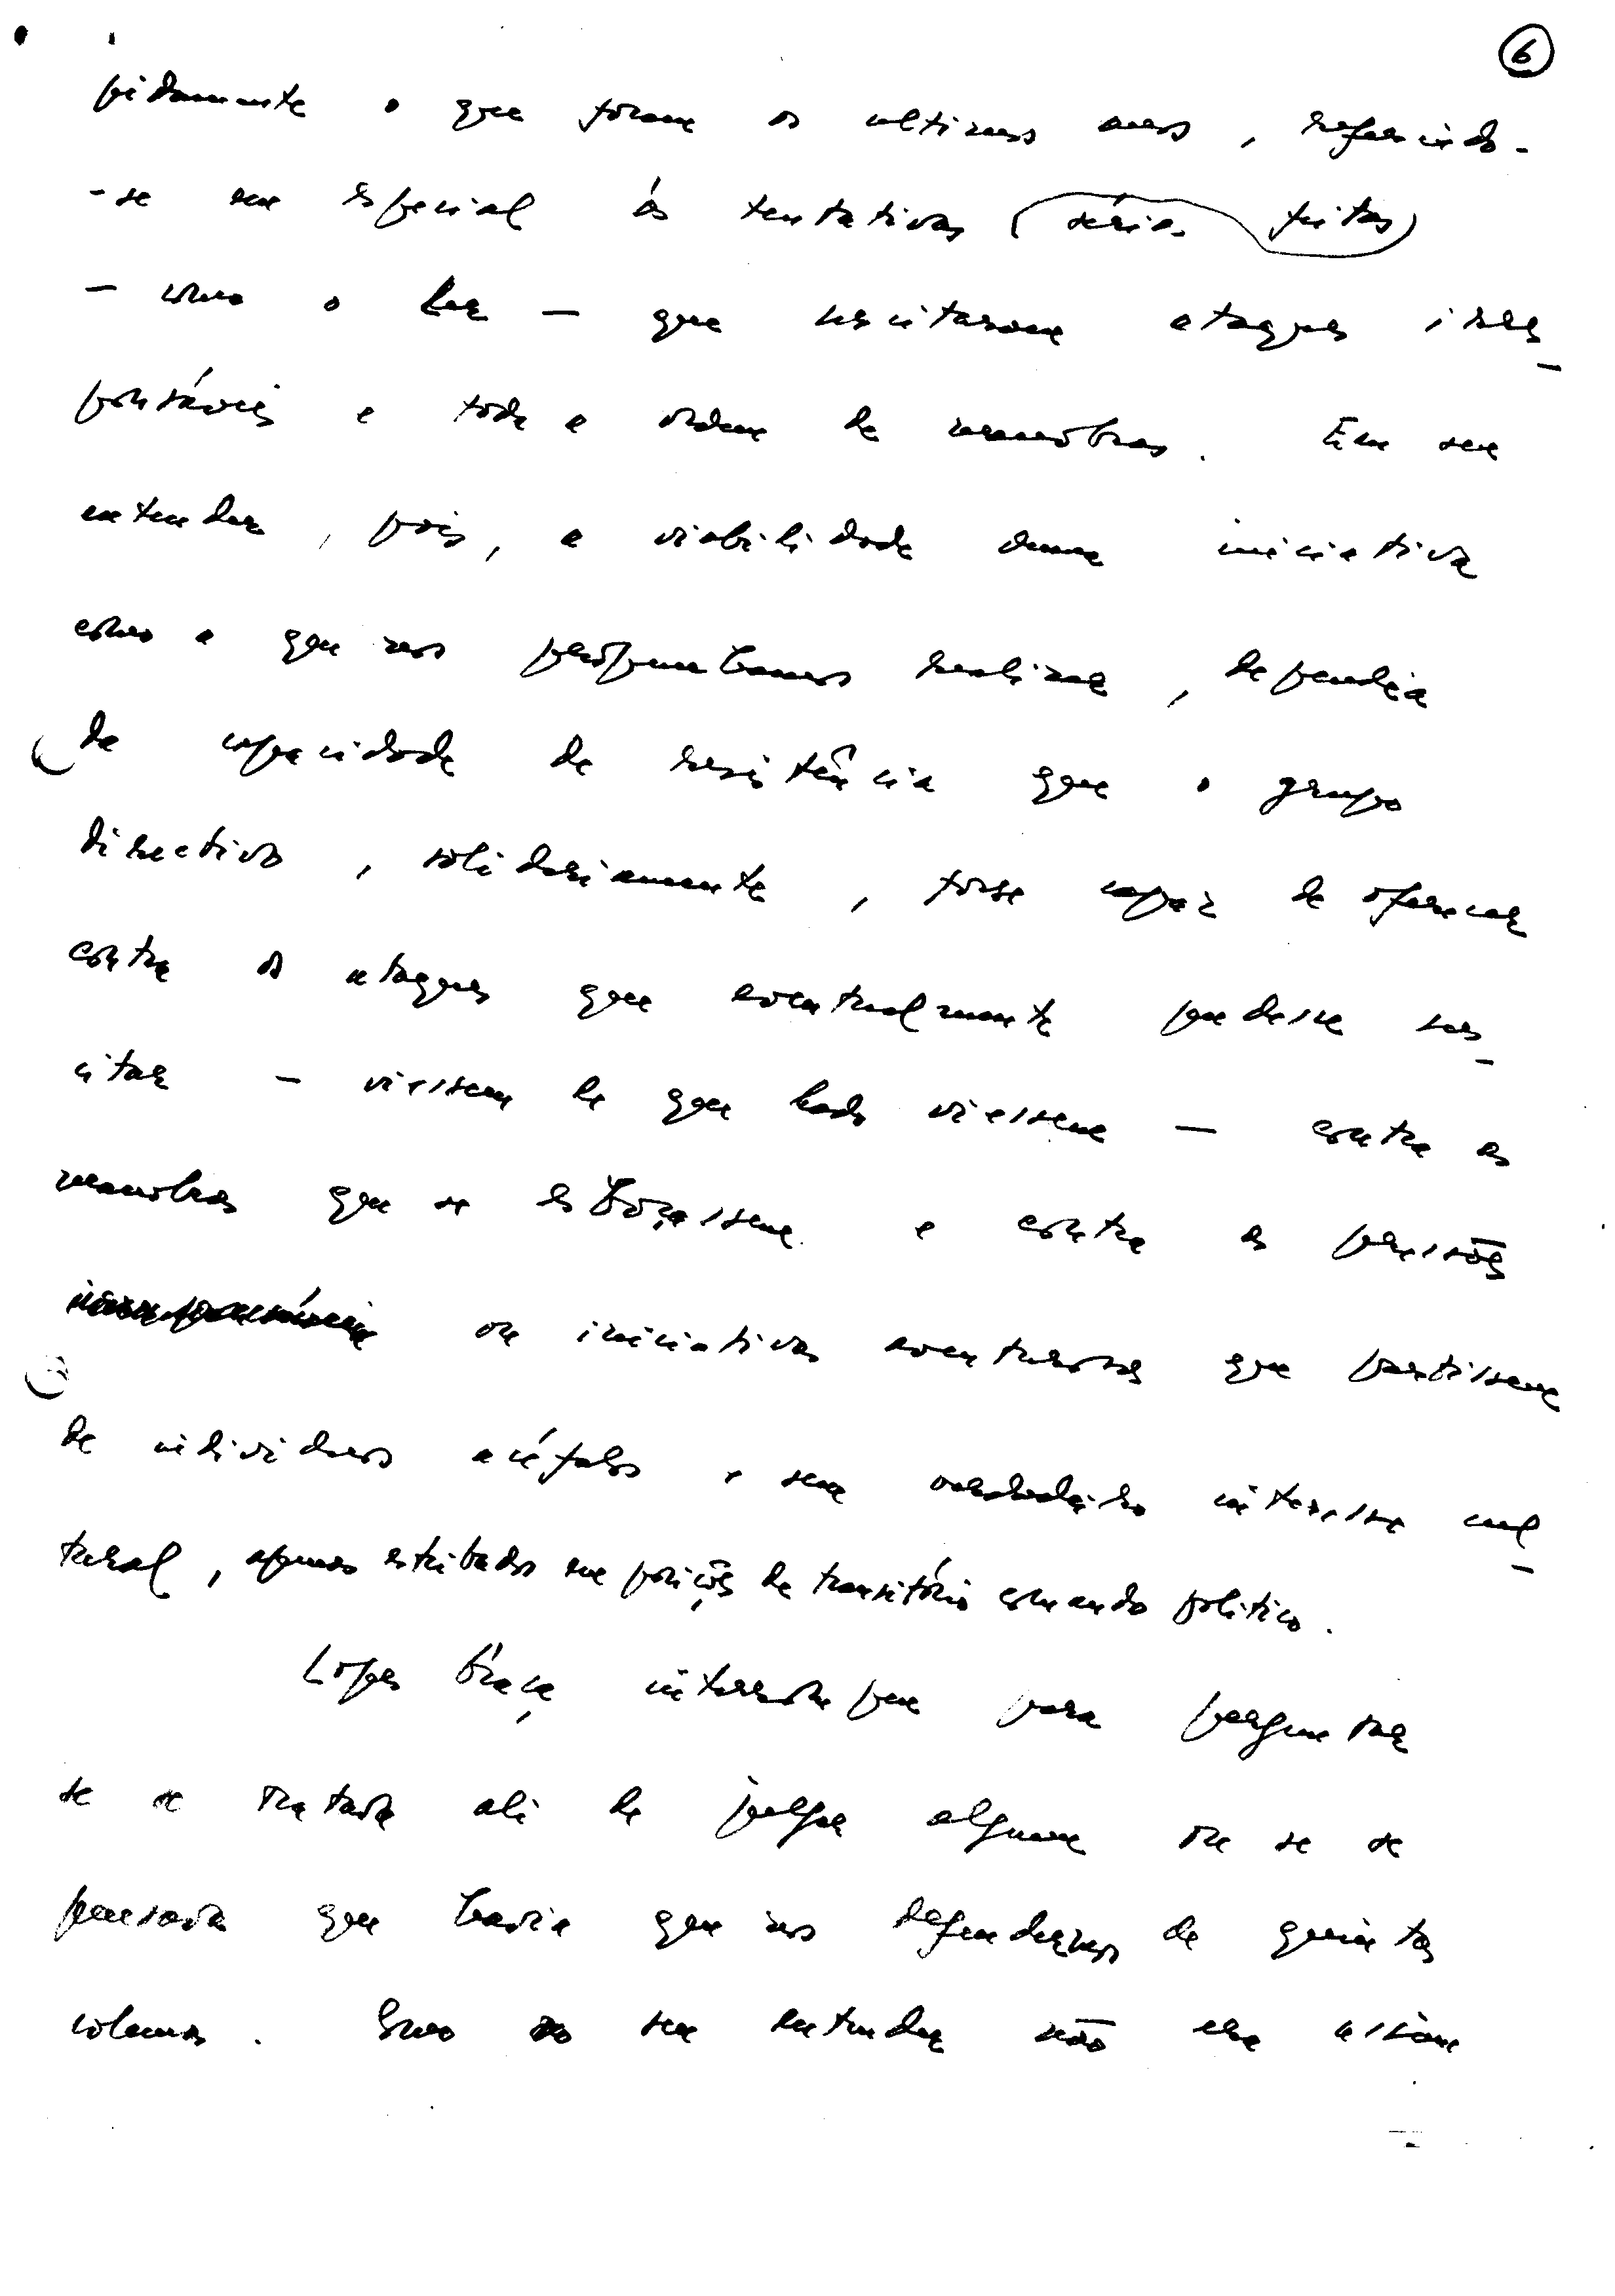 6
pidamente o que foram os ultimos anos, referindo-
-se em especial ás tentativas (sérias feitas)
- como o Ler - que suscitaram ataques irres-
ponsáveis e toda a ordem de manobras. Em seu
entender, pois, a viabilidade duma iniciativa
como a que nos propunhamos realizar, dependia
da capacidade de resistência que o grupo
directivo, solidariamente, fosse capaz de oferecer
contra os ataques que eventualmente pudesse sus-
citar - viessem de que lado viessem - contra as
manobras que se esboçassem e contra as pressões
ou iniciativas aventurosas que partissem
de individuos acéfalos e sem verdadeiro interesse cul-
tural, apenas estribados em posições de transitório comando politico.
Lopes Graça interrompeu para perguntar
se se tratava ali de julgar alguem ou se se
pensava que havia que nos defendermos de quintas
colunas. Como seu entender não era assim